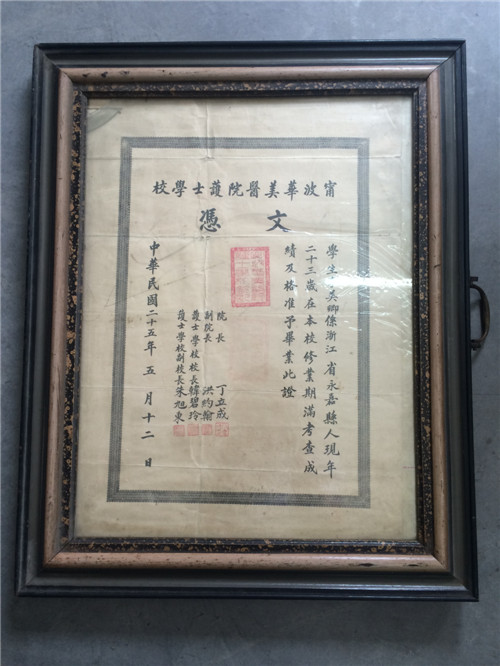 甯波華美醫院護士學校
文憑
學生 美卿係浙江省永嘉縣人現年
二十三歲在本校修業期滿考查成
績及格准予畢業此證
院長 丁立成
副院長 洪約翰
護士學校校長韓碧玲
護士學校副校長朱旭東
中華民國二十五年五月十二日